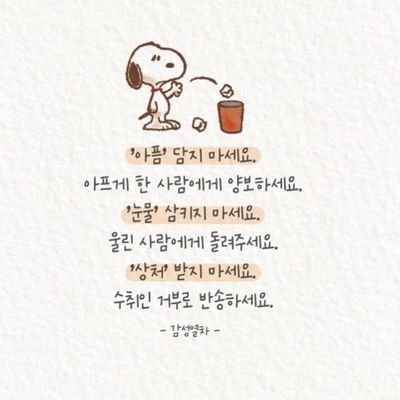 '아픔' 담지 마세요.
아프게 한 사람에게 양보하세요.
'눈물' 삼키지 마세요.
울린 사람에게 돌려주세요.
'상처' 받지 마세요.
수취인 거부로 반송하세요.
- 감성열차 -